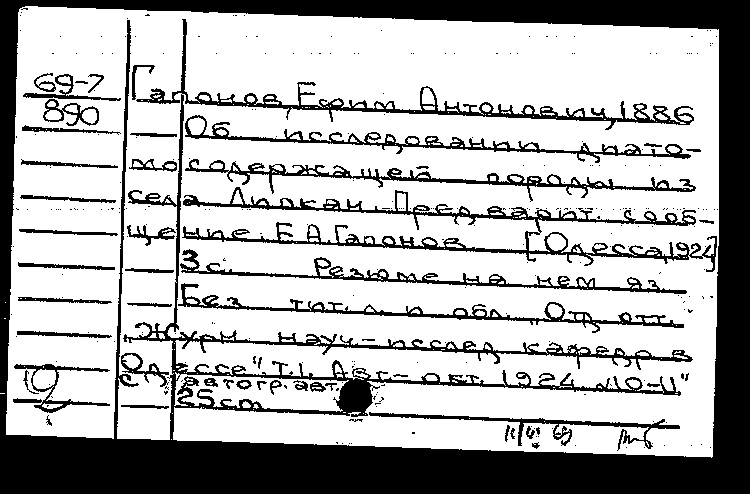 69-7
890
Гапонов, Ефим Антонович, 1886
Об исследовании диато-
мосодержащей породы из
села Липкан. Предварит. сооб-
щение. Е.А.Гапонов. [Одесса, 1924]
3 с. Резюме на нем. яз.
Без тит. л. и обл. "Отд. отт.
"Журн. науч.-исслед. кафедр в
Одессе". Т.I. Авг.-окт. 1924. №10-11"
С автогр. авт.
25 cm.